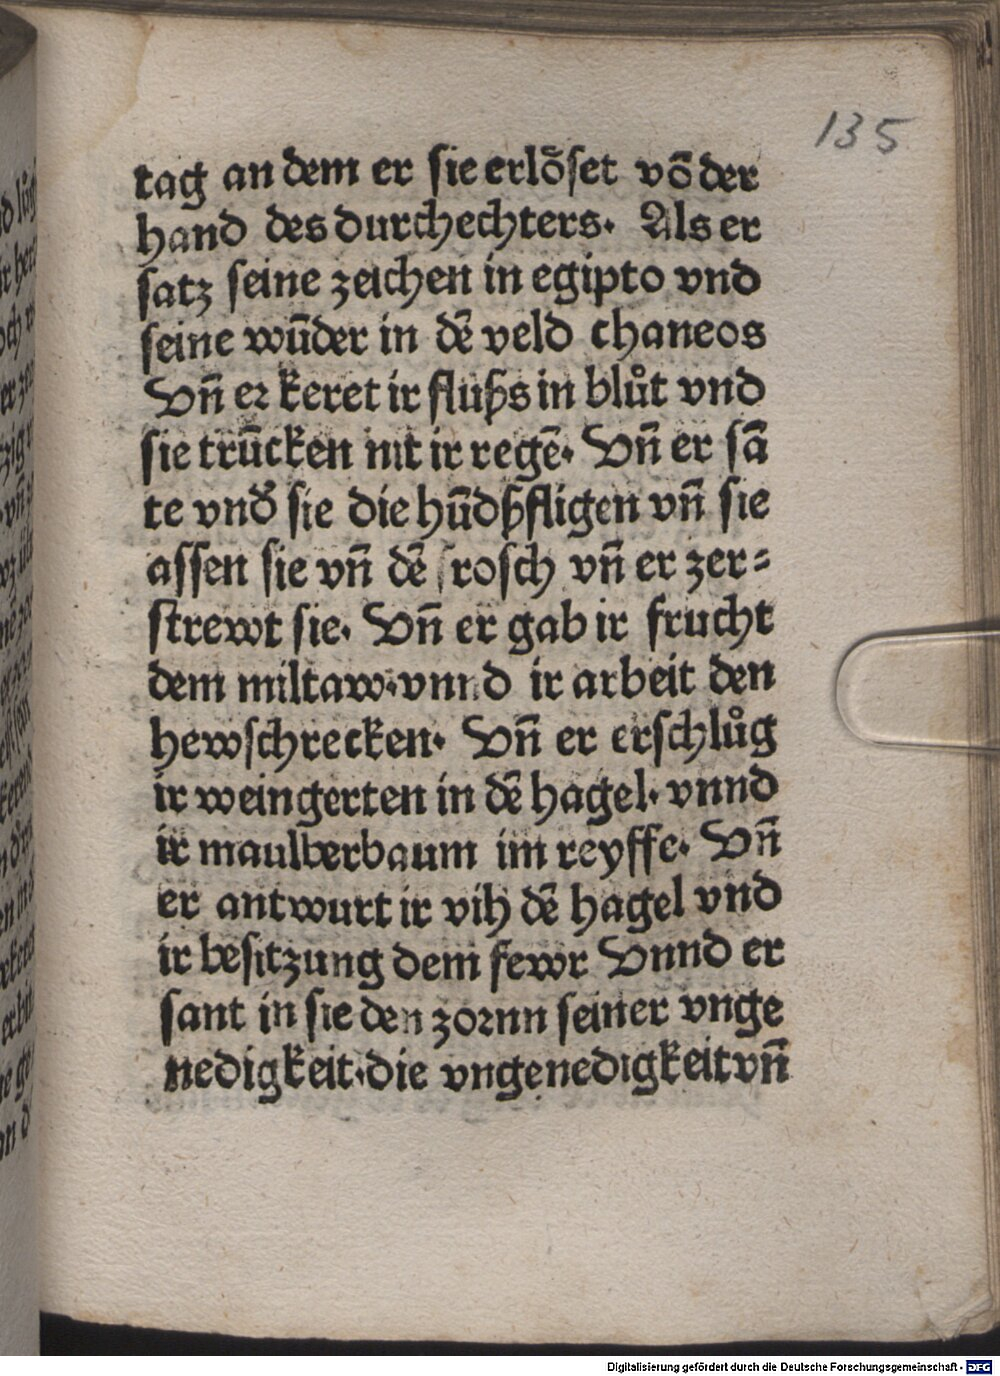 135
tag an dem er sie erlöset võ der
hand des durchechters. Als er
satz seine zeichen in egipto vnd
seine wũder in dẽ veld chaneos
Vñ er keret ir flußs in blůt vnd
sie trũcken nit ir regẽ. Vñ er sã
te vnd̄ sie die hũdßfligen vñ sie
assen sie vñ dẽ frosch vñ er zer=
strewt sie. Vñ er gab ir frucht
dem miltaw.vnnd ir arbeit den
hewschrecken. Vñ er erschlůg
ir weingerten in dẽ hagel. vnnd
ir maulberbaum im reyffe. Vñ
er antwurt ir vih dẽ hagel vnd
ir besitzung dem fewr Vnnd er
sant in sie den zornn seiner vnge
nedigkeit.die vngenedigkeit vñ
Digitalisierung gefördert durch die Deutsche Forschungsgemeinschaft - DFG